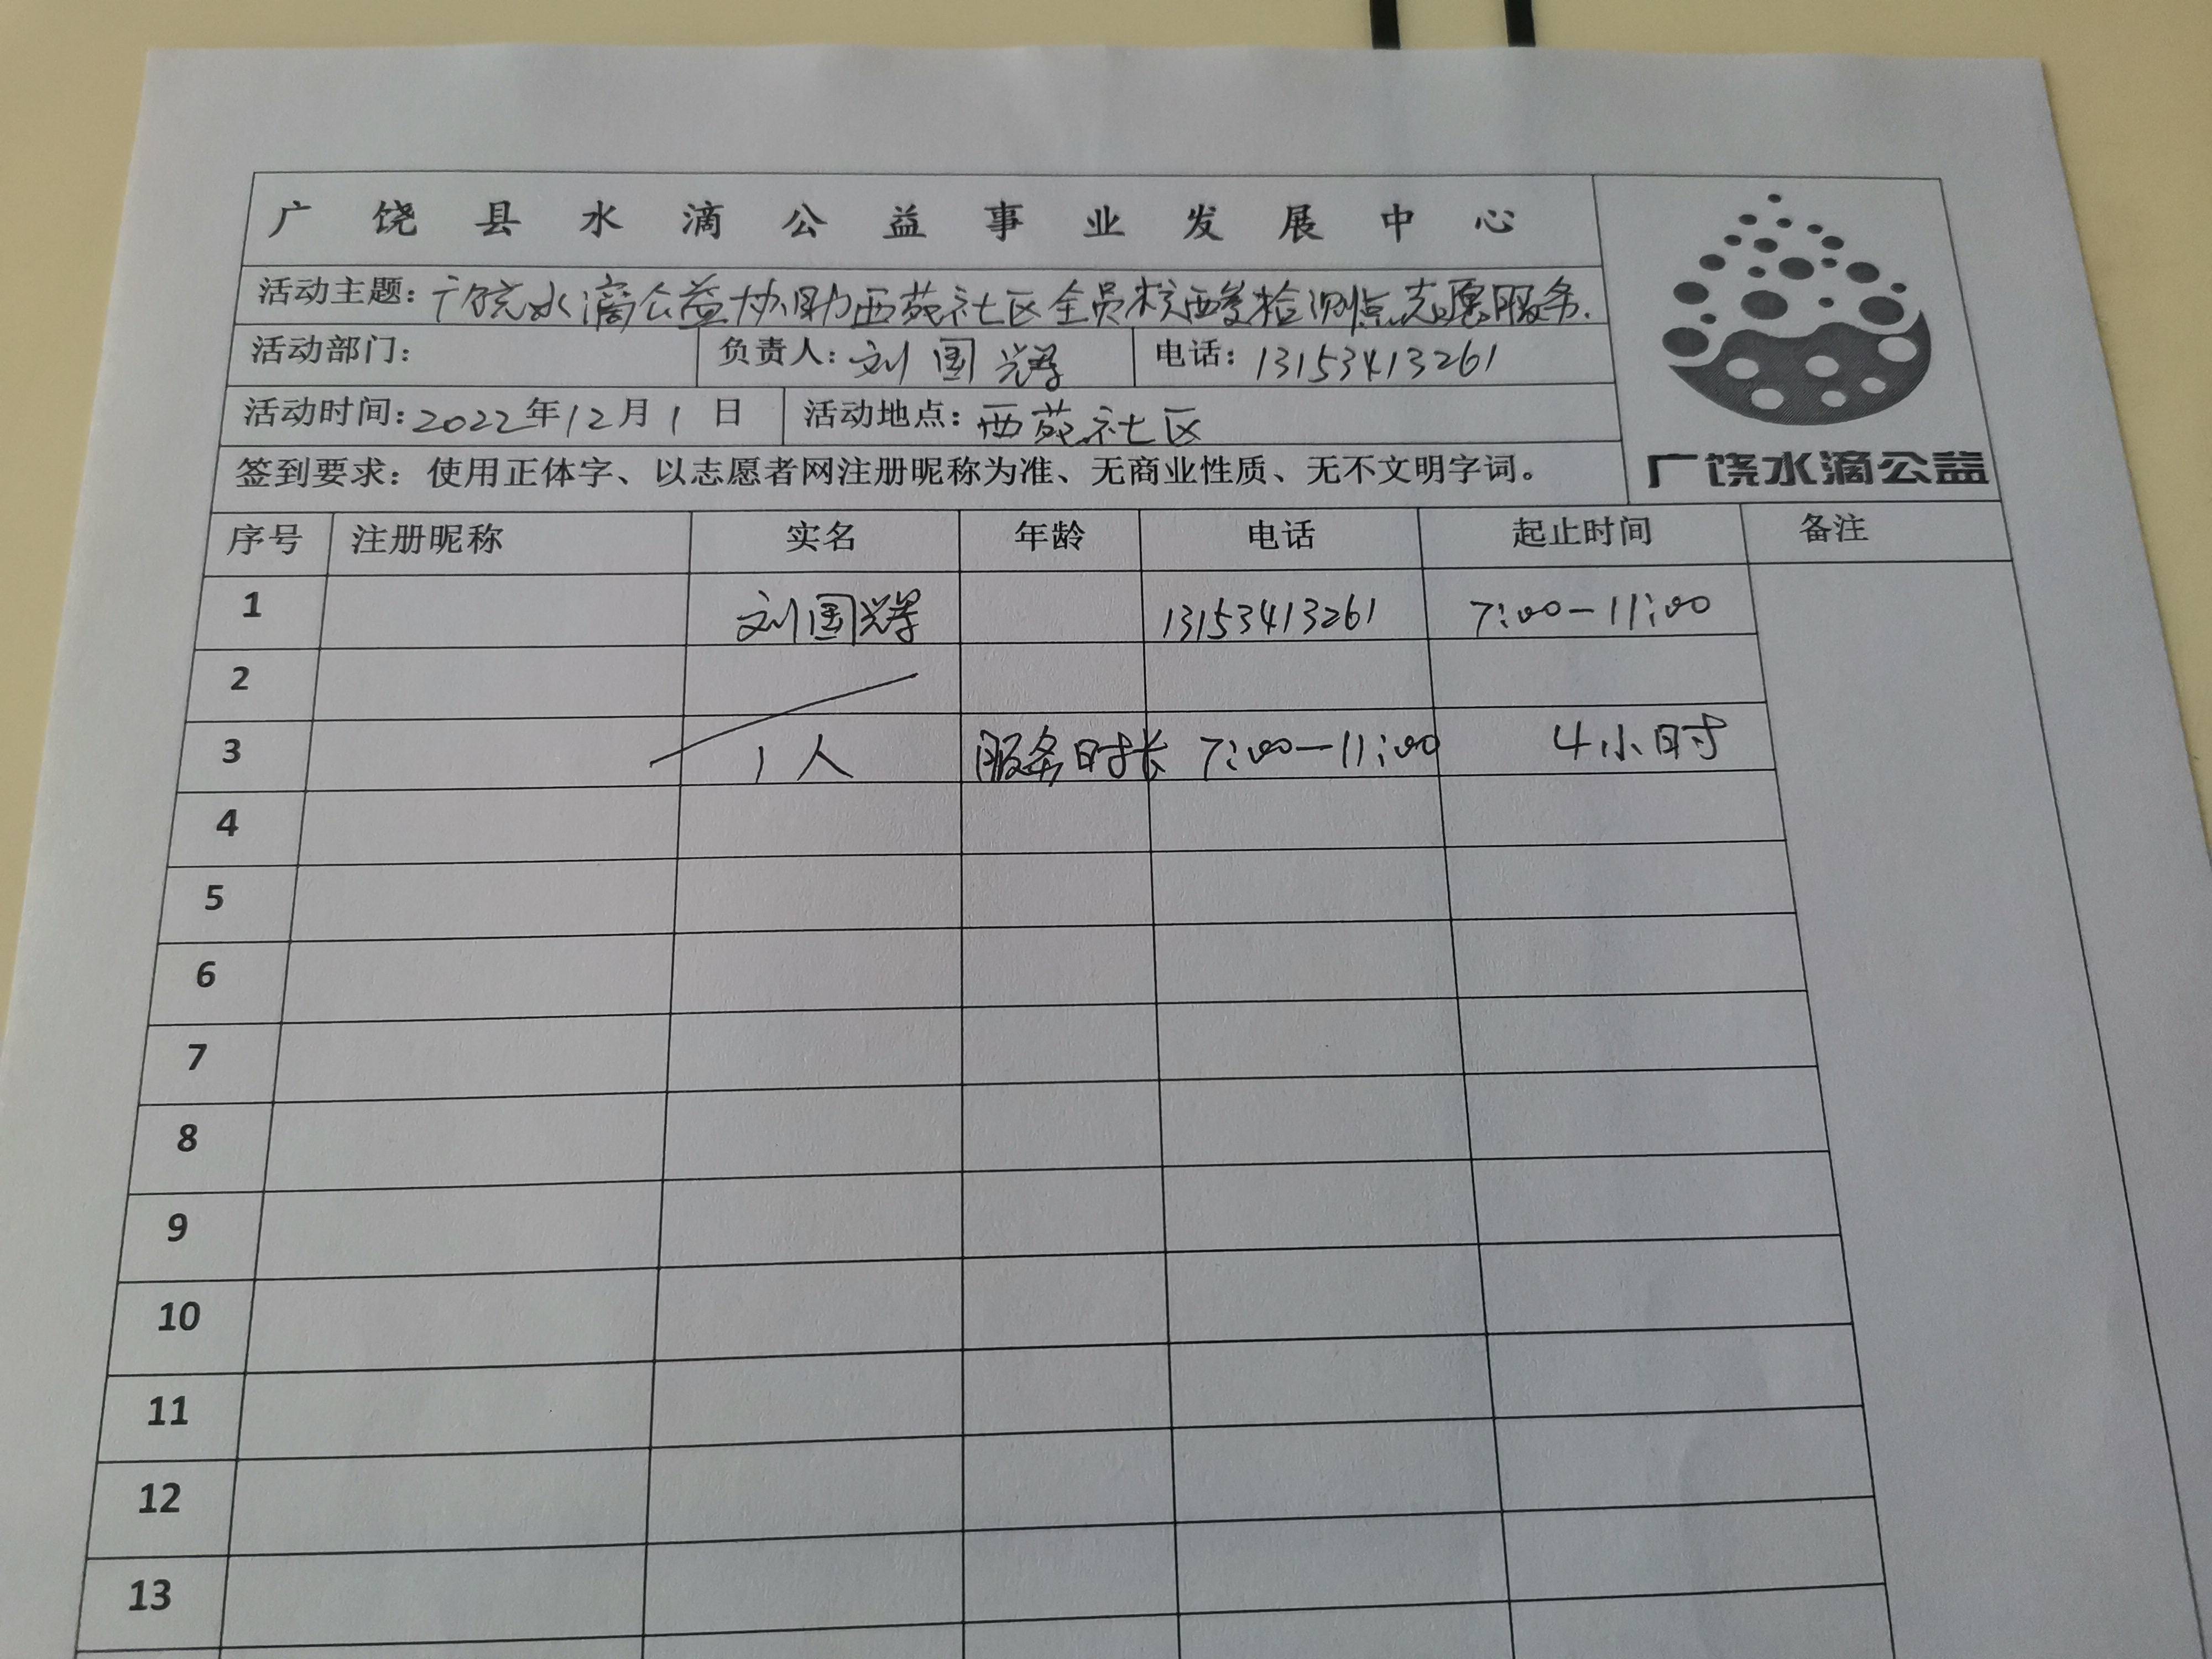 广饶县水滴公益事业发展中心
活动主题：广饶水滴公益协助西苑社区全员核酸检测点志愿服务.
活动部门： 负责人：刘国辉 电话：13153413261
活动时间：2022年12月1日 活动地点：西苑社区
广饶水滴公益
签到要求：使用正体字、以志愿者网注册昵称为准、无商业性质、无不文明字词。
序号 注册昵称 实名 年龄 电话 起止时间 备注
1 刘国辉 13153413261 7:00-11:00
2
3 1人 服务时长 7:00-11:00 4小时
4
5
6
7
8
9
10
11
12
13